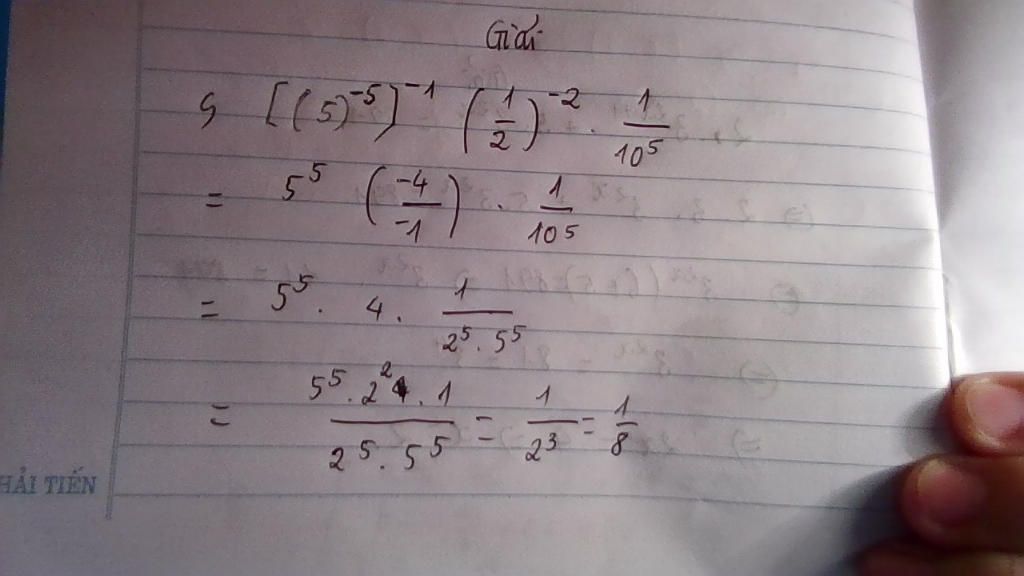 Giải
ς [(5)^-5]^-1 (1/2)^-2 . 1/10^5
= 5^5 (-4/-1) . 1/10^5
= 5^5 . 4 . 1/(2^5 . 5^5)
= (5^5 . 2^2 . 1)/(2^5 . 5^5) = 1/2^3 = 1/8
HẢI TIẾN